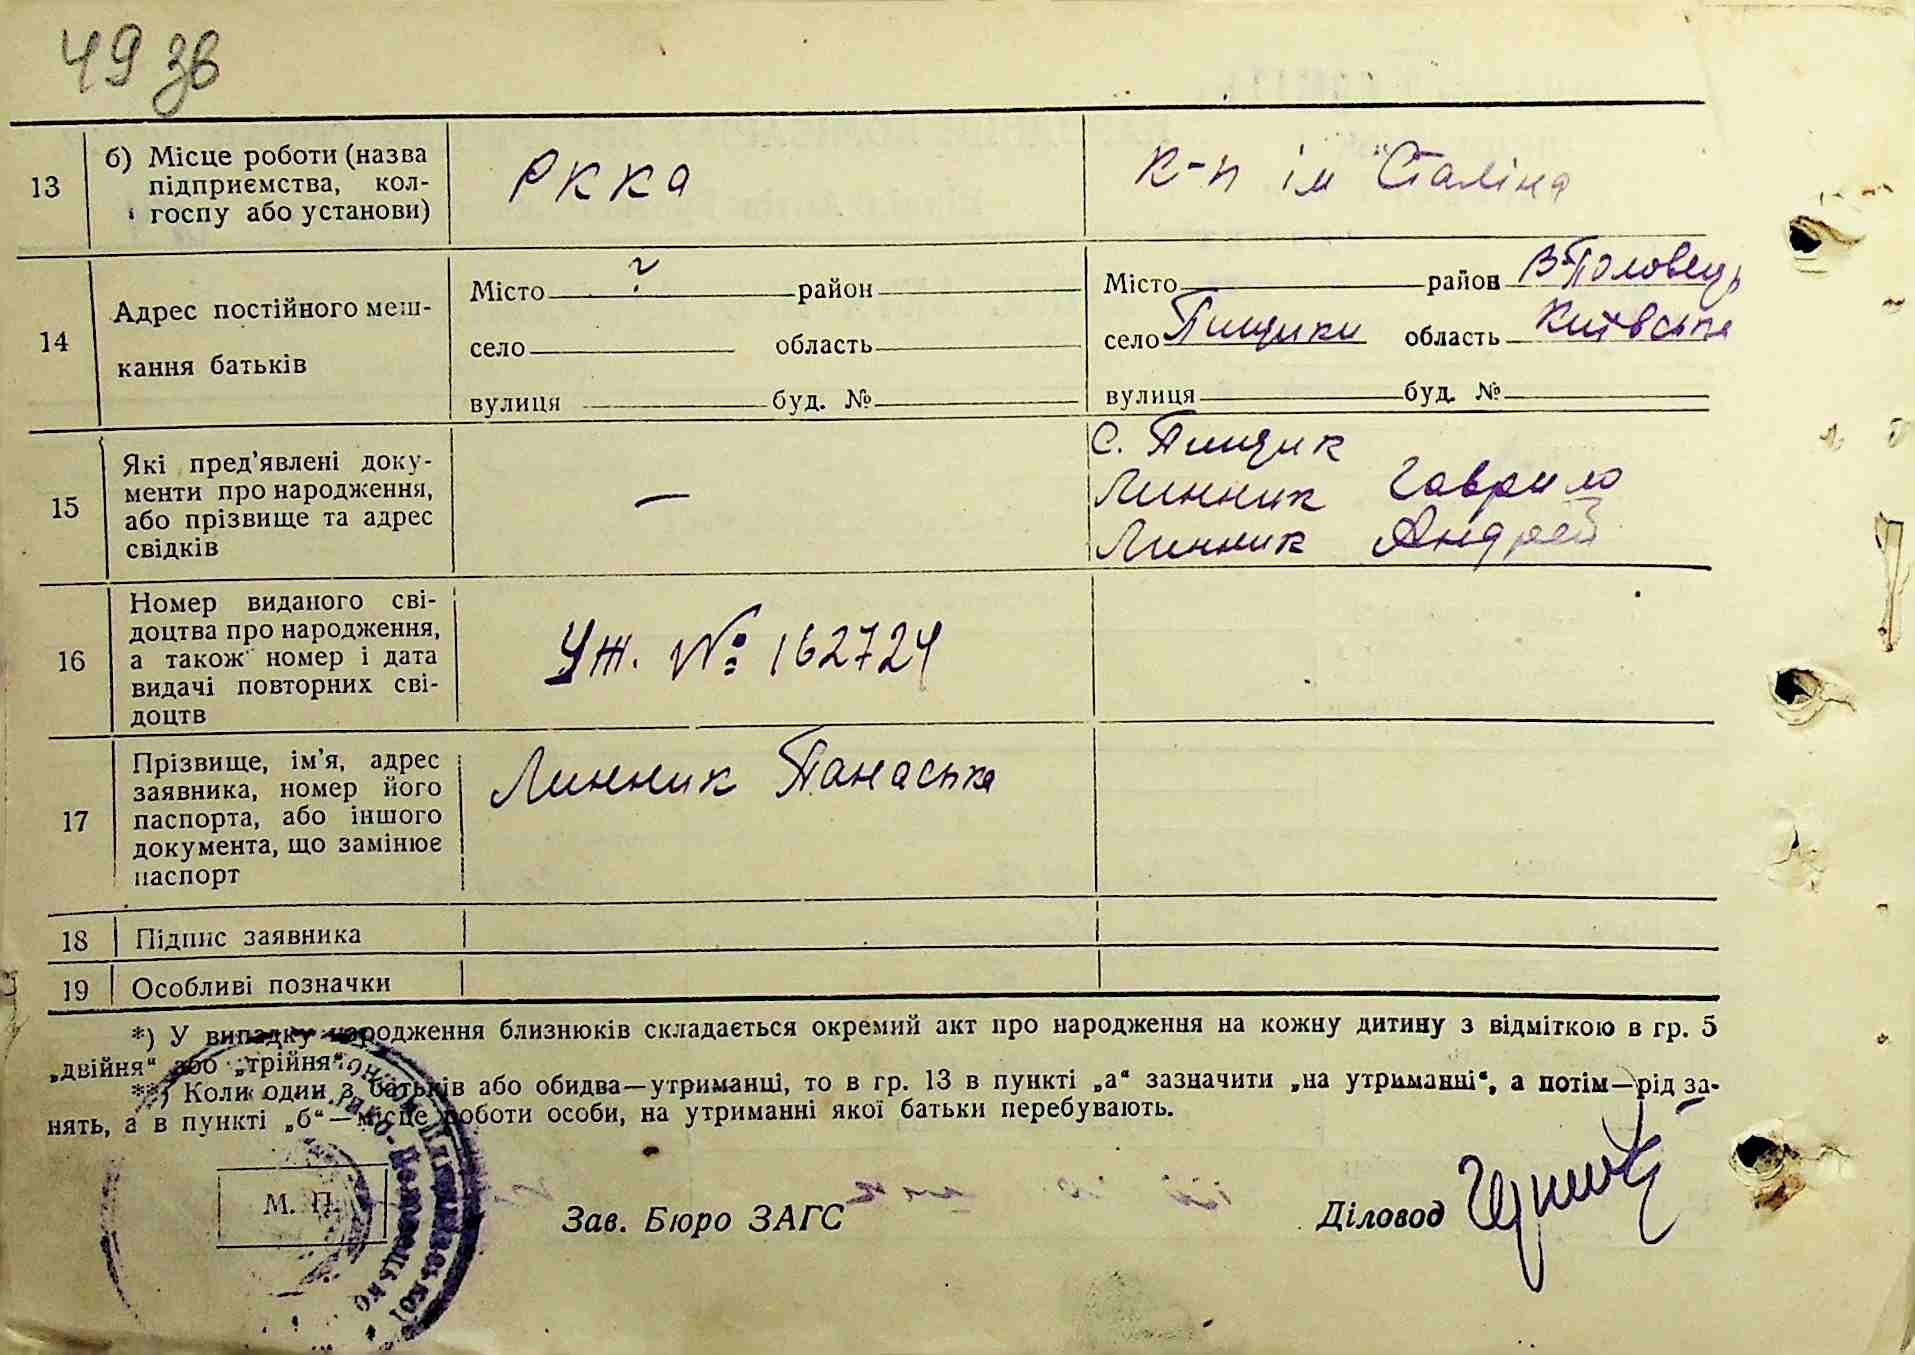 49 зв
13
б) Місце роботи (назва
підприємства, кол-
госпу або установи)
РККА
к-п ім Сталіна
14
Адрес постійного меш-
кання батьків
Місто ? район
село область
вулиця буд. №
Місто район В-Половець
село Пищики область Київська
вулиця буд. №
15
Які пред'явлені доку-
менти про народження,
або прізвище та адрес
свідків
—
с. Пищик
Линник Гаврило
Линник Андрей
16
Номер виданого сві-
доцтва про народження,
а також номер і дата
видачі повторних сві-
доцтв
УЖ. № 162724
17
Прізвище, ім'я, адрес
заявника, номер його
паспорта, або іншого
документа, що замінює
паспорт
Линник Панаська
18 Підпис заявника
19 Особливі позначки
*) У випадку народження близнюків складається окремий акт про народження на кожну дитину з відміткою в гр. 5
„двійня“ або „трійня“.
**) Коли один з батьків або обидва—утриманці, то в гр. 13 в пункті „а“ зазначити „на утриманні“, а потім—рід за-
нять, а в пункті „б“—місце роботи особи, на утриманні якої батьки перебувають.
М. П.
Зав. Бюро ЗАГС
Діловод